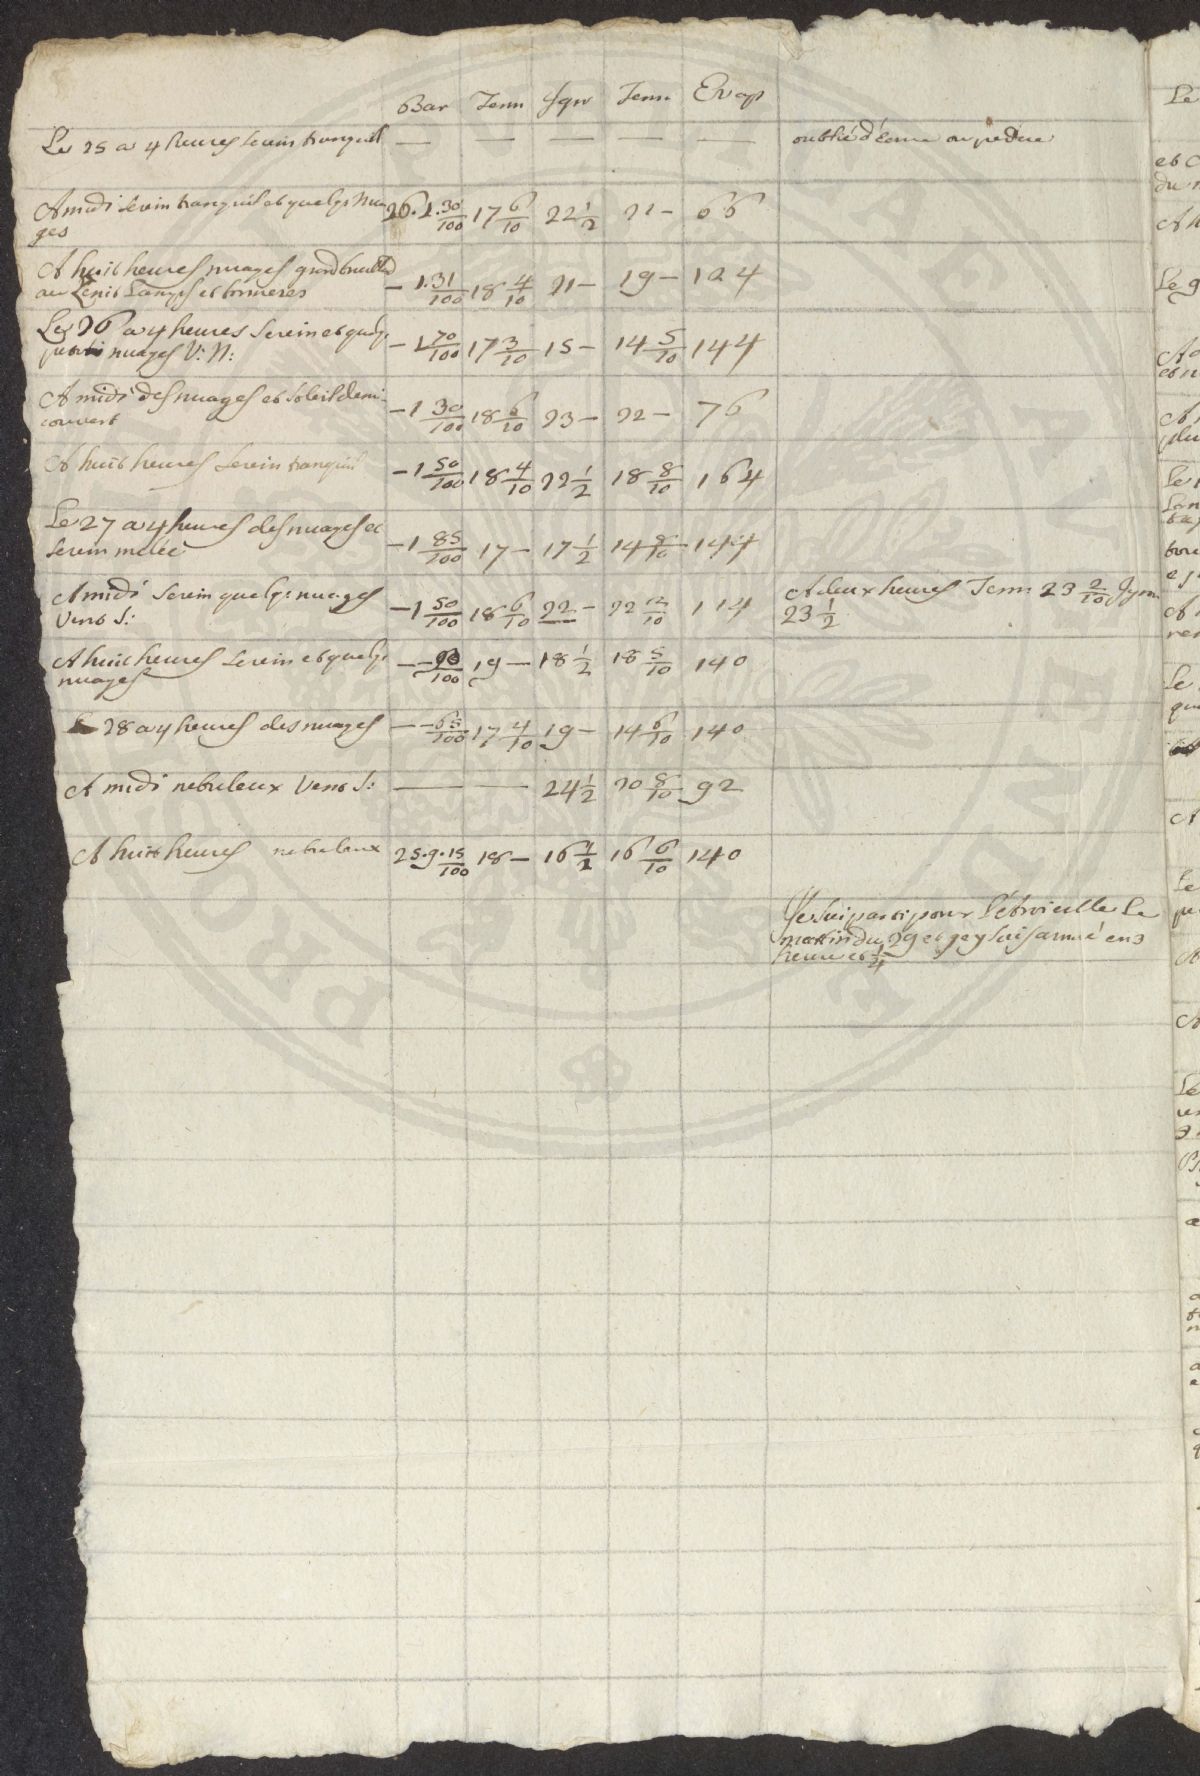 Bar Term Igr Term Evap
Le 25 a 4 heures serein tranquil — — — — — oublié d'ecrire ou perdue
A midi serein tranquil et quelqs nua 26.1.30/100 17 6/10 22 1/2 21 – 66
ges
A huit heures nuages grand
au Zenit – 1.31/100 18 4/10 21 – 19 – 124
Les 26 a 4 heures Serein et quelqs
petits nuages V: N: – 1 70/100 17 3/10 15 – 14 5/10 144
A midi des nuages et soleil demi – 1 30/100 18 6/10 23 – 22 – 76
couvert
A huit heures serein tranquil – 1 50/100 18 4/10 22 1/2 18 8/10 164
Le 27 a 4 heures des nuages et
serein melée – 1 85/100 17 – 17 1/2 14 8/10 144
A midi serein quelqs nuages A deux heures Term 23 2/10 Igrm
Vent S: – 1 50/100 18 6/10 22 – 22 2/10 114 23 1/2
A huit heures serein et quelqs – – 90/100 19 – 18 1/2 18 5/10 140
nuages
28 a 4 heures des nuages – – 65/100 17 4/10 19 – 14 6/10 140
A midi nebuleux Vent S: — — 24 1/2 20 8/10 92
A huit heures nebuleux 25.9.15/100 18 – 16 1/2 16 6/10 140
Je sui parti pour Le
matin du 29 et je y suis arrivé en 3
heure et 1/4